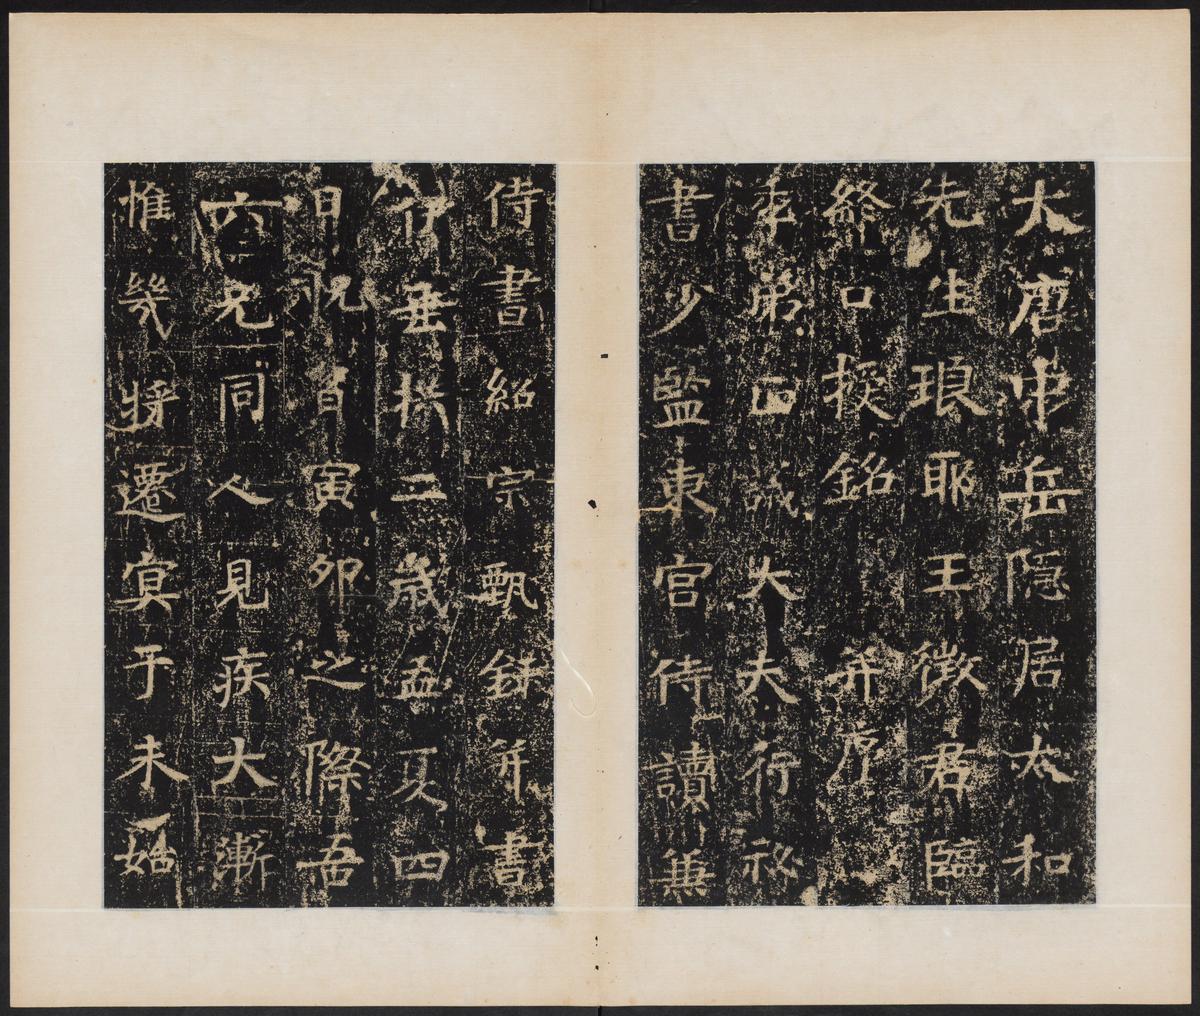 大唐中岳隱居太和
先生琅耶王徵君臨
終口授銘 并序
季弟正議大夫行祕
書少監東宮侍讀兼
侍書紹宗甄錄并書
伊垂拱二歲孟夏四
日恍眘寅卯之際吾
六兄同人見疾大漸
惟幾將遷冥于未始